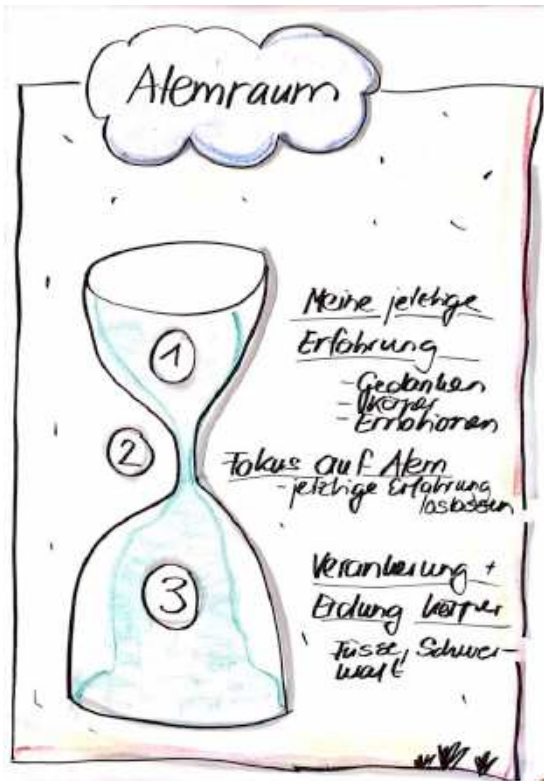 Atemraum
1
Meine jetzige
Erfahrung
- Gedanken
- Körper
- Emotionen
2
Fokus auf Atem
- jetzige Erfahrung
loslassen
3
Verankerung +
Erdung Körper
Füsse, Schwer-
kraft